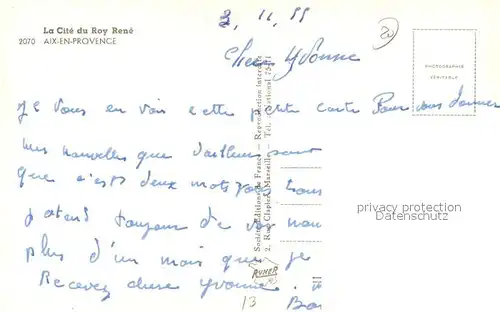 La Cité du Roy René
2070 AIX-EN-PROVENCE
3, 11, 55
Chère Yvonne
PHOTOGRAPHIE
VÉRITABLE
je vous en vois cette petite carte Pour vous donner
mes nouvelles que d'ailleurs sont
Que c'est deux mots vous
toujours de vos nou
plus d'un mois que je
Recevez chère Yvonne
13
Société Éditions de France - Reproduction Interdite
2, Rue Clapier, Marseille - Tél.: National
RYNER
privacy protection
Datenschutz